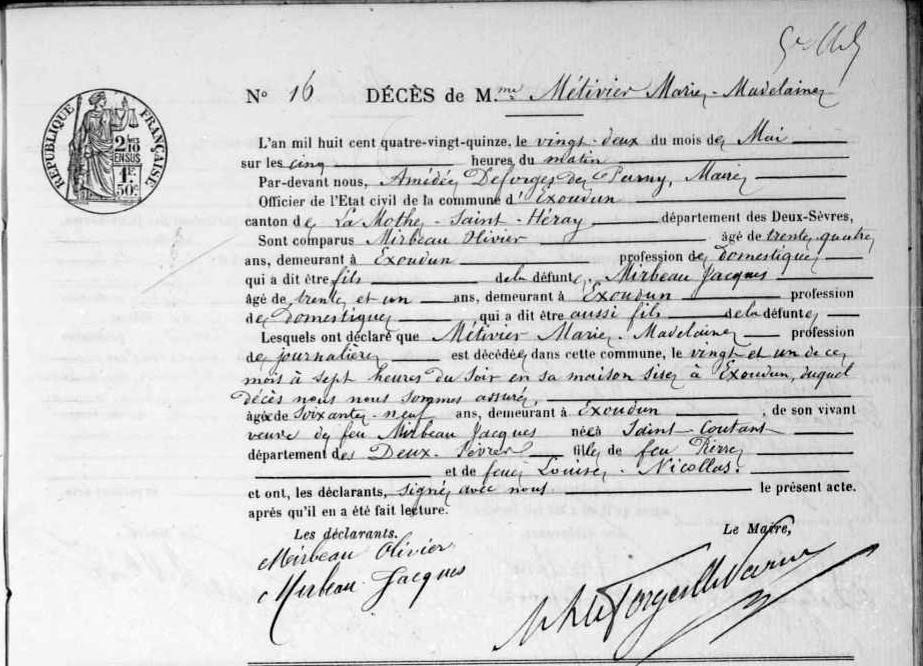 N° 16 DÉCÈS de M.me Métivier Marie-Madelaine
RÉPUBLIQUE FRANÇAISE
2/10 EN SUS
1F. 50c
L'an mil huit cent quatre-vingt-quinze, le vingt-deux du mois de Mai
sur les cinq heures du matin
Par-devant nous, Amédée Desforges de Parny, Maire
Officier de l'Etat civil de la commune d'Exoudun
canton de La Mothe-Saint-Héray département des Deux-Sèvres,
Sont comparus Mirbeau Olivier âgé de trente quatre
ans, demeurant à Exoudun profession de domestique
qui a dit être fils de la défunte, Mirbeau Jacques
âgé de trente et un ans, demeurant à Exoudun profession
de domestique qui a dit être aussi fils de la défunte
Lesquels ont déclaré que Métivier Marie-Madelaine profession
de journalière est décédée dans cette commune, le vingt et un de ce
mois à sept heures du soir en sa maison sise à Exoudun, duquel
décès nous nous sommes assuré,
âgée de soixante-neuf ans, demeurant à Exoudun, de son vivant
veuve de feu Mirbeau Jacques née à Saint-Coutant
département des Deux-Sèvres fille de feu Pierre
et de feue Louise Nicollas.
et ont, les déclarants, signé avec nous le présent acte.
après qu'il en a été fait lecture.
Les déclarants. Le Maire,
Mirbeau Olivier
Mirbeau Jacques